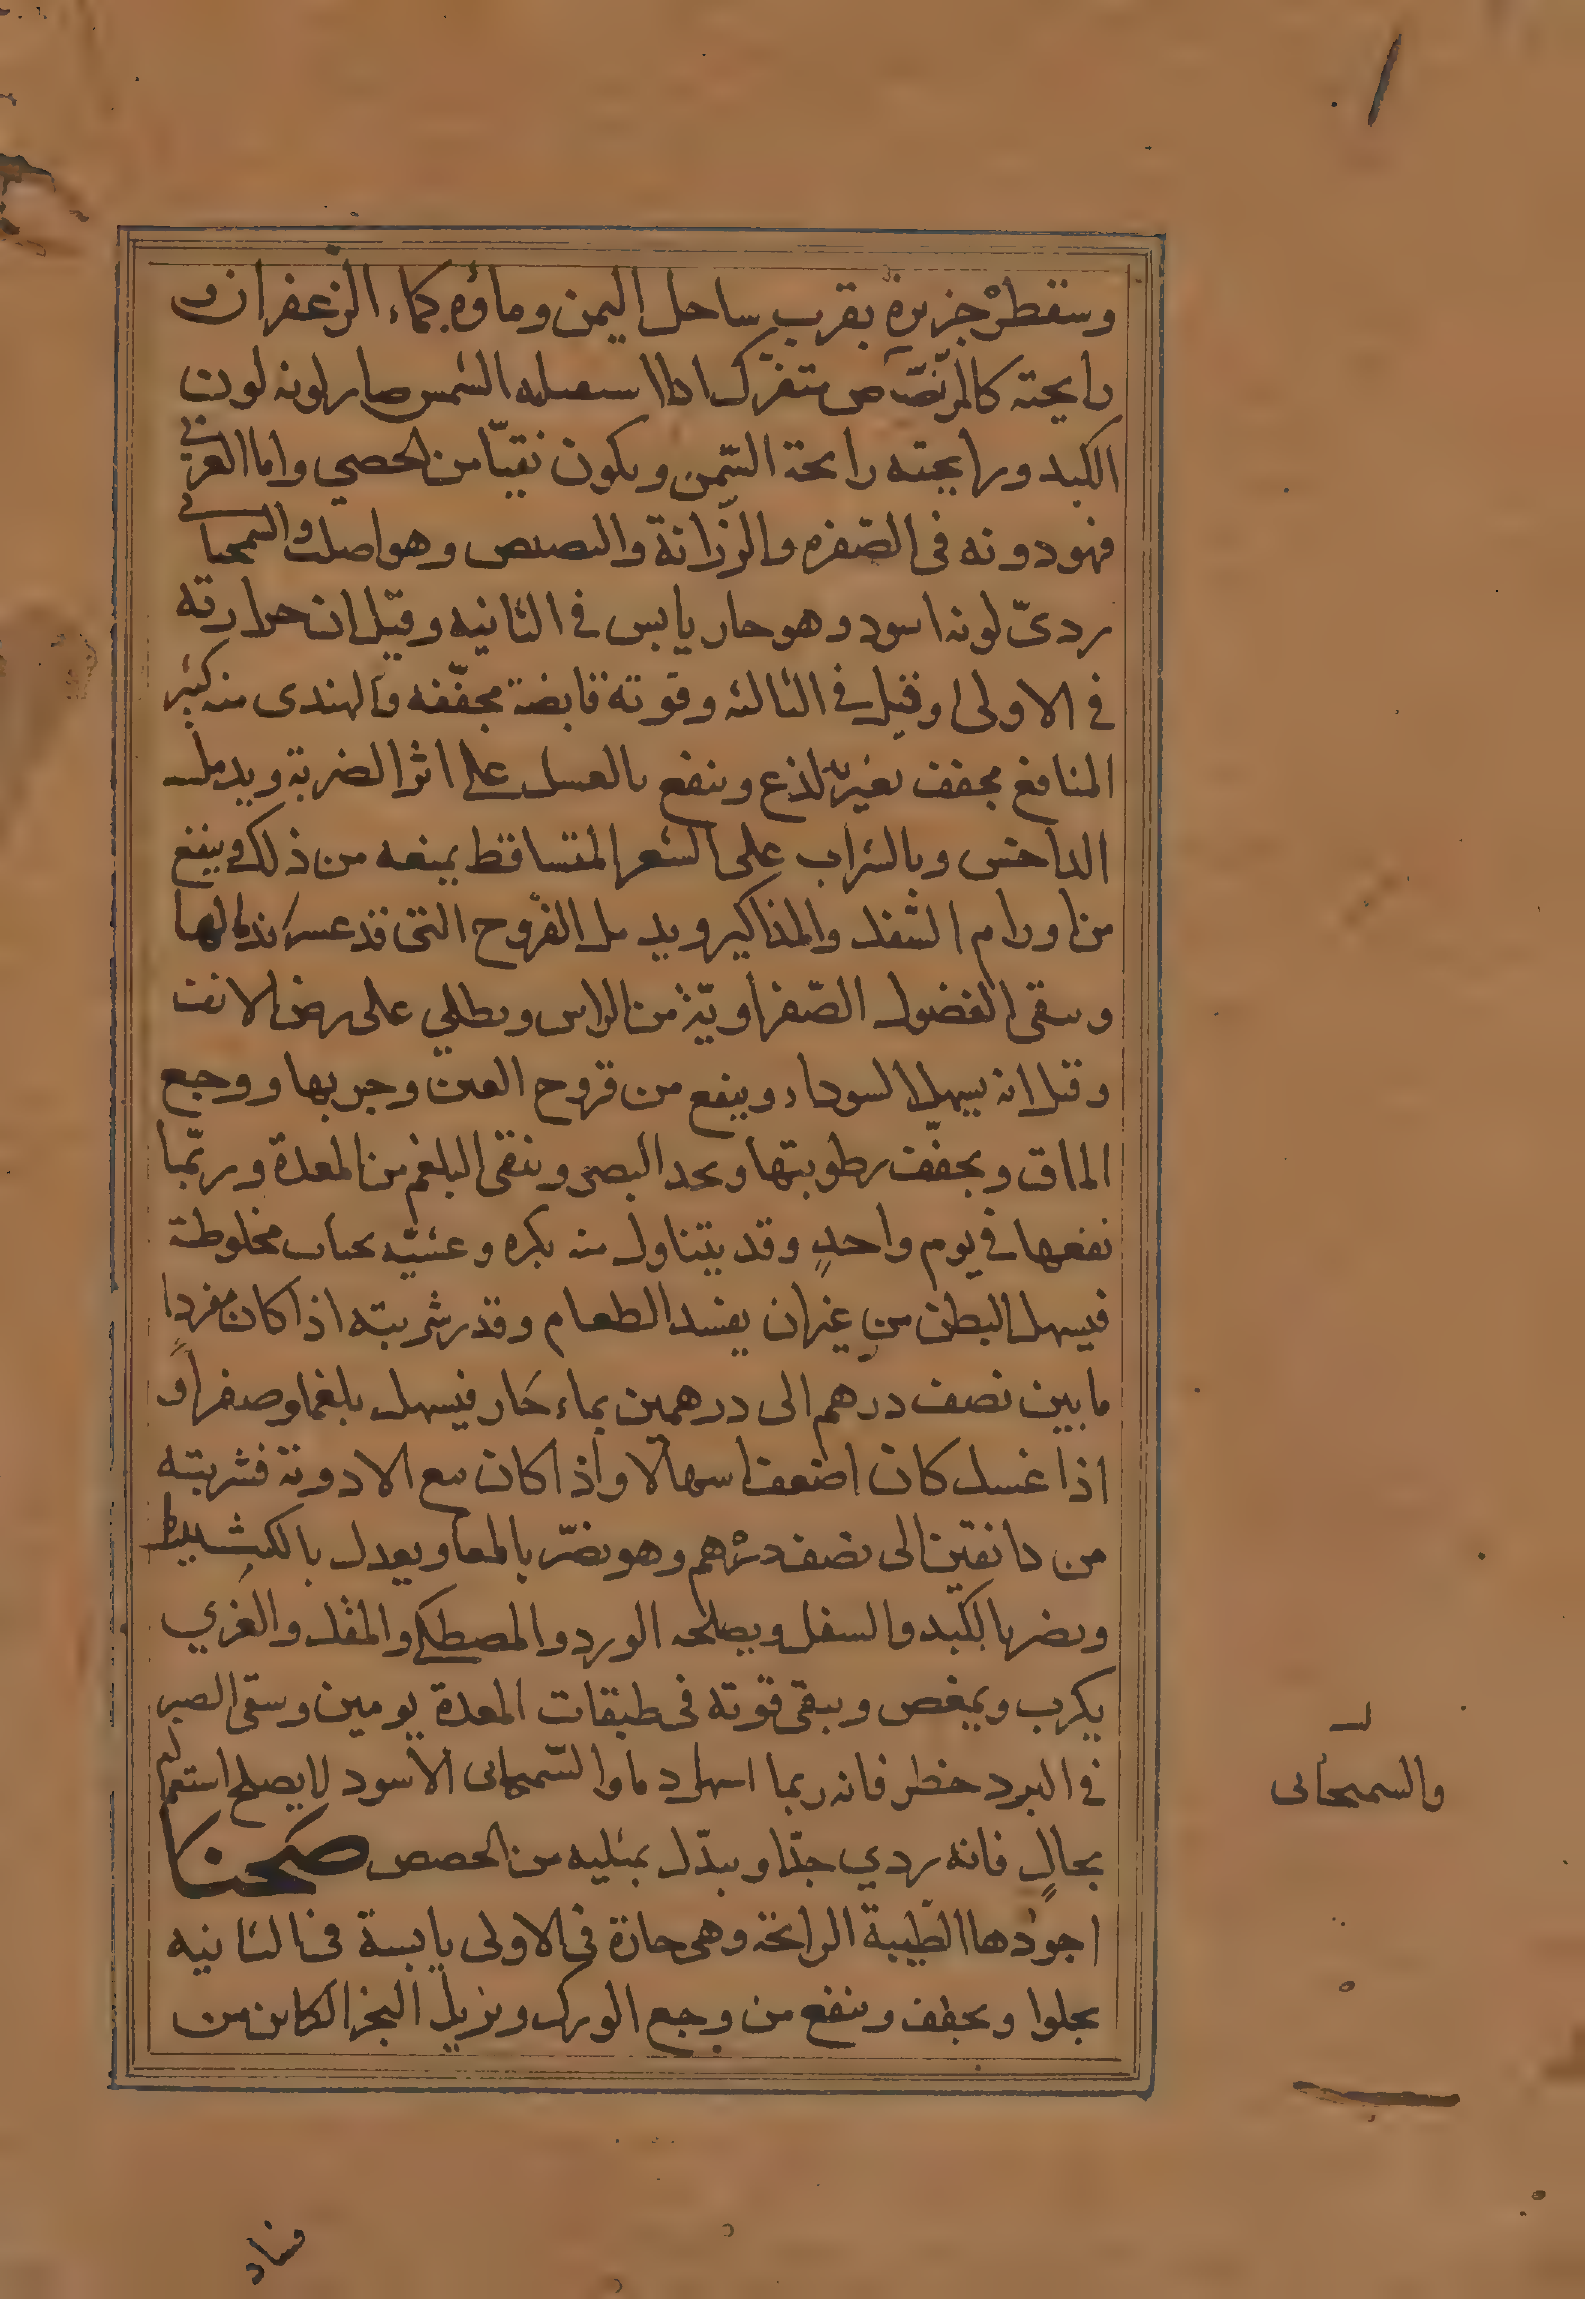 وسقطرة جزيرة بقرب ساحل اليمن وماؤه كماء الزعفران و
رايحته كالمر بصّاص متفرّك اذا استقبله الشمس صار لونه لون
الكبد ورايحته رايحة السّمن ويكون نقيّا من الحصى واما العربي
فهو دونه فى الصّفره والرّزانة والبصيص وهو اصلب والسمجانى
ردىّ لونه اسود وهو حار يابس فى الثانيه وقيل ان حرارته
فى الاولى وقيل فى الثالثه وقوته قابضة مجفّفه والهندى منه كثير
المنافع مجفف بغير لذع وينفع بالعسل على اثر الضربة ويدمل
الداحس وبالشراب على الشعر المتساقط يمنعه من ذلك وينفع
من اورام السّفل والمذاكير ويدمل القروح التى قد عسر اندمالها
وينقى الفضول الصّفراويّة من الراس ويطلى على رض الانف
وقيل انه يسهل السوداء وينفع من قروح العين وجربها ووجع
الماق ويجفّف رطوبتها ويحد البصر وينقى البلغم من المعدة وربّما
نفعها فى يوم واحدٍ وقد يتناول منه بكره وعشيّه بحباب مخلوطة
فيسهل البطن من غير ان يفسد الطعام وقدر شربته اذا كان مفرداً
ما بين نصف درهم الى درهمين بماء حَار فيسهل بلغما وصفرا و
اذا غسل كان اضعف اسهالا واذا كان مع الادوية فشربته
من دانقين الى نصف درهم وهو يضرّ بالمعا ويعدل بالكثيرا
ويضر بالكبد والسفل ويصلحه الورد والمصطكى والمقل والعربي
يكرب ويمغص ويبقى قوته فى طبقات المعدة يومين وسقى الصبر
فى البرد خطر فانه ربما اسهل دما والسّمجانى الاسود لا يصلح استعماله
بحالٍ فانه ردي جدّا ويبدّل بمثليه من الحصص صحنا
اجودها الطّيبة الرايحة وهى حارة فى الاولى يابسة فى الثانيه
يجلوا ويجفف وينفع من وجع الورك ويزيل البخر الكاين من
والسمجانى
فساد